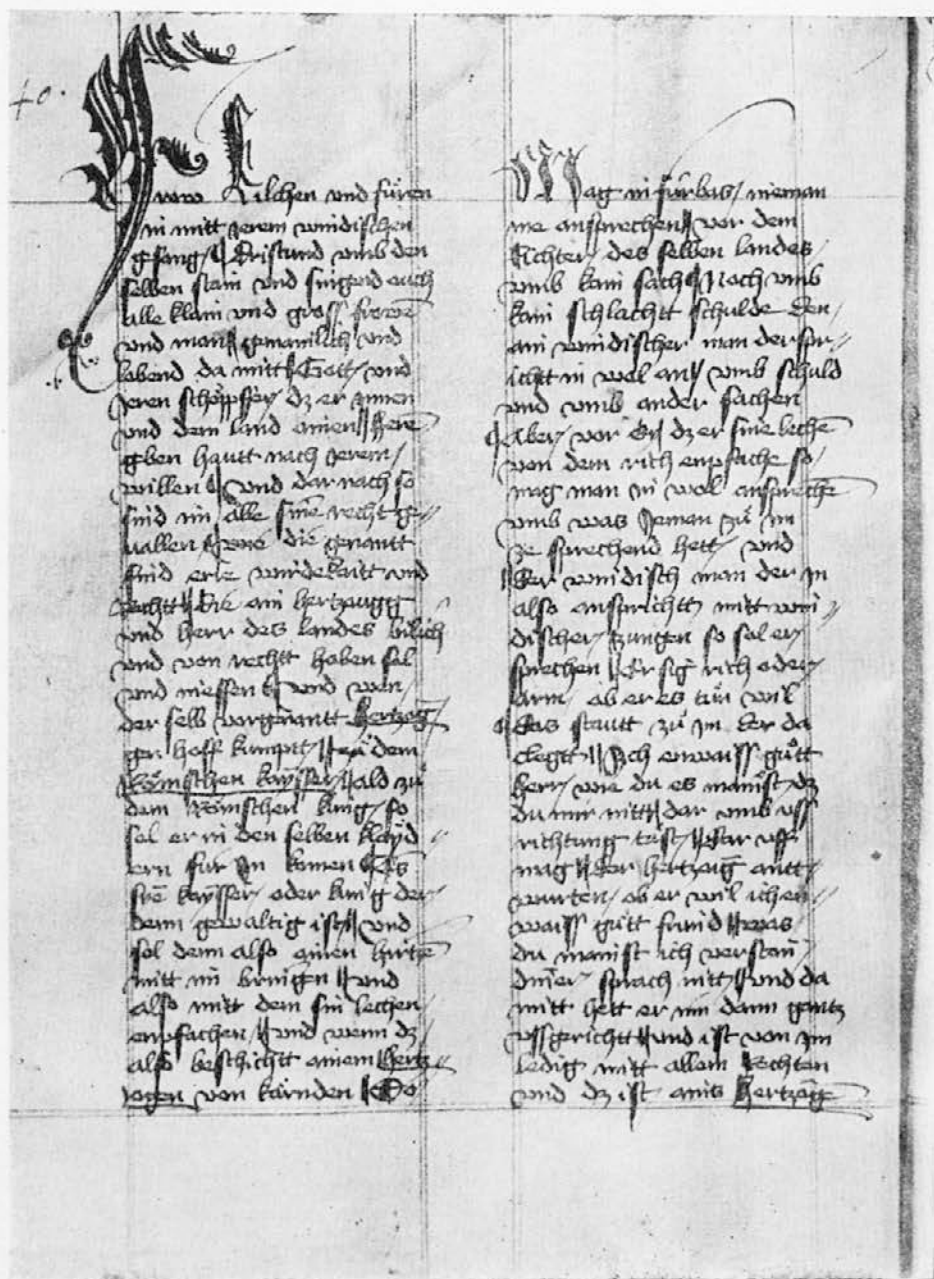 40.
kilchen und füren
in mitt jerem windischen
gsang / kristund umb den
selben stain und singend ouch
alle klain und gross frowē
und man gemainlich und
lobend da mitt Gott / und
jeren schöpffer / dz er jnnen
und dem land ainen herē
geben hautt nach jerem /
willen und dar nach so
sind im älle sine recht ge //
vallen die genantt
sind erle wirdekaitt und
rechtt / die ain hertzougg
und herr des landes bilich
und von rechtt haben sol
und niessen und wen /
der selb vorgenantt hertzog
gen hoff kumptt / zu dem
Römischen kaysser / ald zü
dem Römischen küng / so
sol er in den selben klayd //
ern für In komen
kaysser / oder küng der /
denn gewaltig ist / und
sol denn also ainen hirtzē
mitt im bringen und
also mitt dem sin lechen /
enpfachen / und wenn dz
also beschichtt ainem hertz //
ogen von kärnden So
Mag in fürbas / nieman
me ansprechen vor dem
Richter / des selben landes /
umb kain sach Noch umb
kain schlachtt schulde den /
ain windischer man der spr //
ichtt in wol an / umb schuld
und umb ander sachen
Aber / vor Ee dz er sine lechē
von dem rich enpfache so /
mag man in wol ansprechē
umb was Jeman zü im
ze sprechend hett / und
der windisch man der in
also ansprichtt mitt win //
discher / zungen so sol er /
sprechen Er sig rich oder /
arm / ob er es tün wil
das stautt zü im der da
clegtt Ich enwaiss gütt
herr / wie du es mainst / dz
du mir nitt dar umb uss
richtung tüst / Dar uff
mag der hertzog antt /
wurten / ob er wil ich en //
waiss gütt fründ was /
du mainst ich verstan
diner / sprach nitt und da
mitt hett er im dann gantz
ussgerichtt und ist von im
ledig mitt allem Rechten
und dz ist ains hertzogē